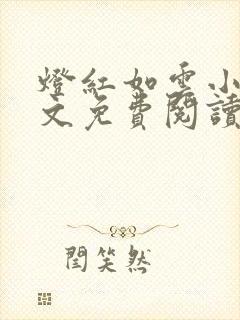 燈紅如雲小
文免費閱讀
閆笑然